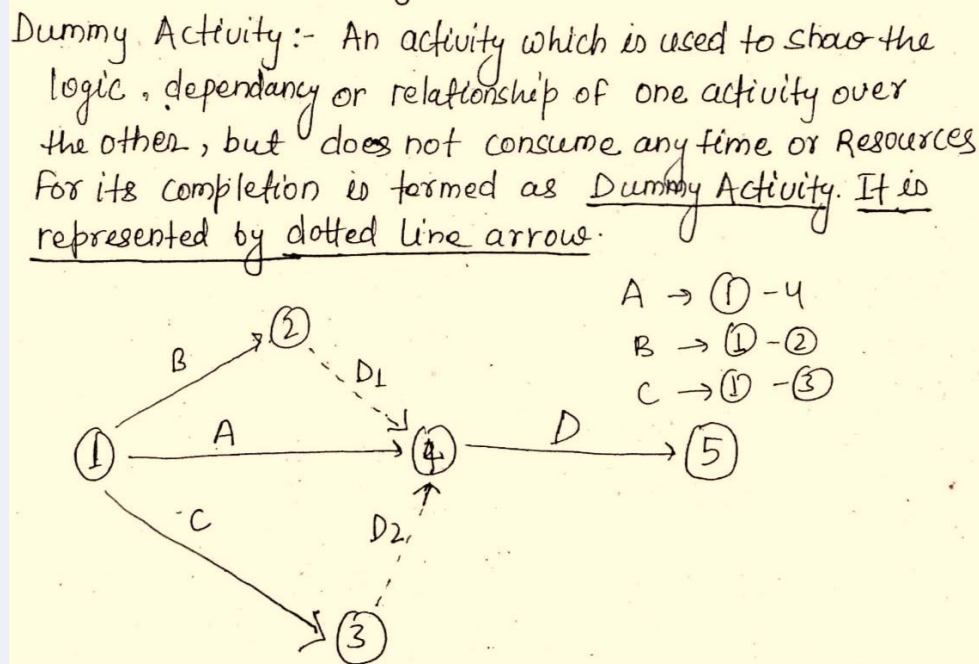 Dummy Activity :- An activity which is used to show the
logic, dependancy or relationship of one activity over
the other, but does not consume any time or Resources
For its completion is termed as Dummy Activity. It is
represented by dotted line arrow.
A → ① - 4
B → ① - ②
C → ① - ③
②
B
D1
A
D
①
④
⑤
C
D2
③